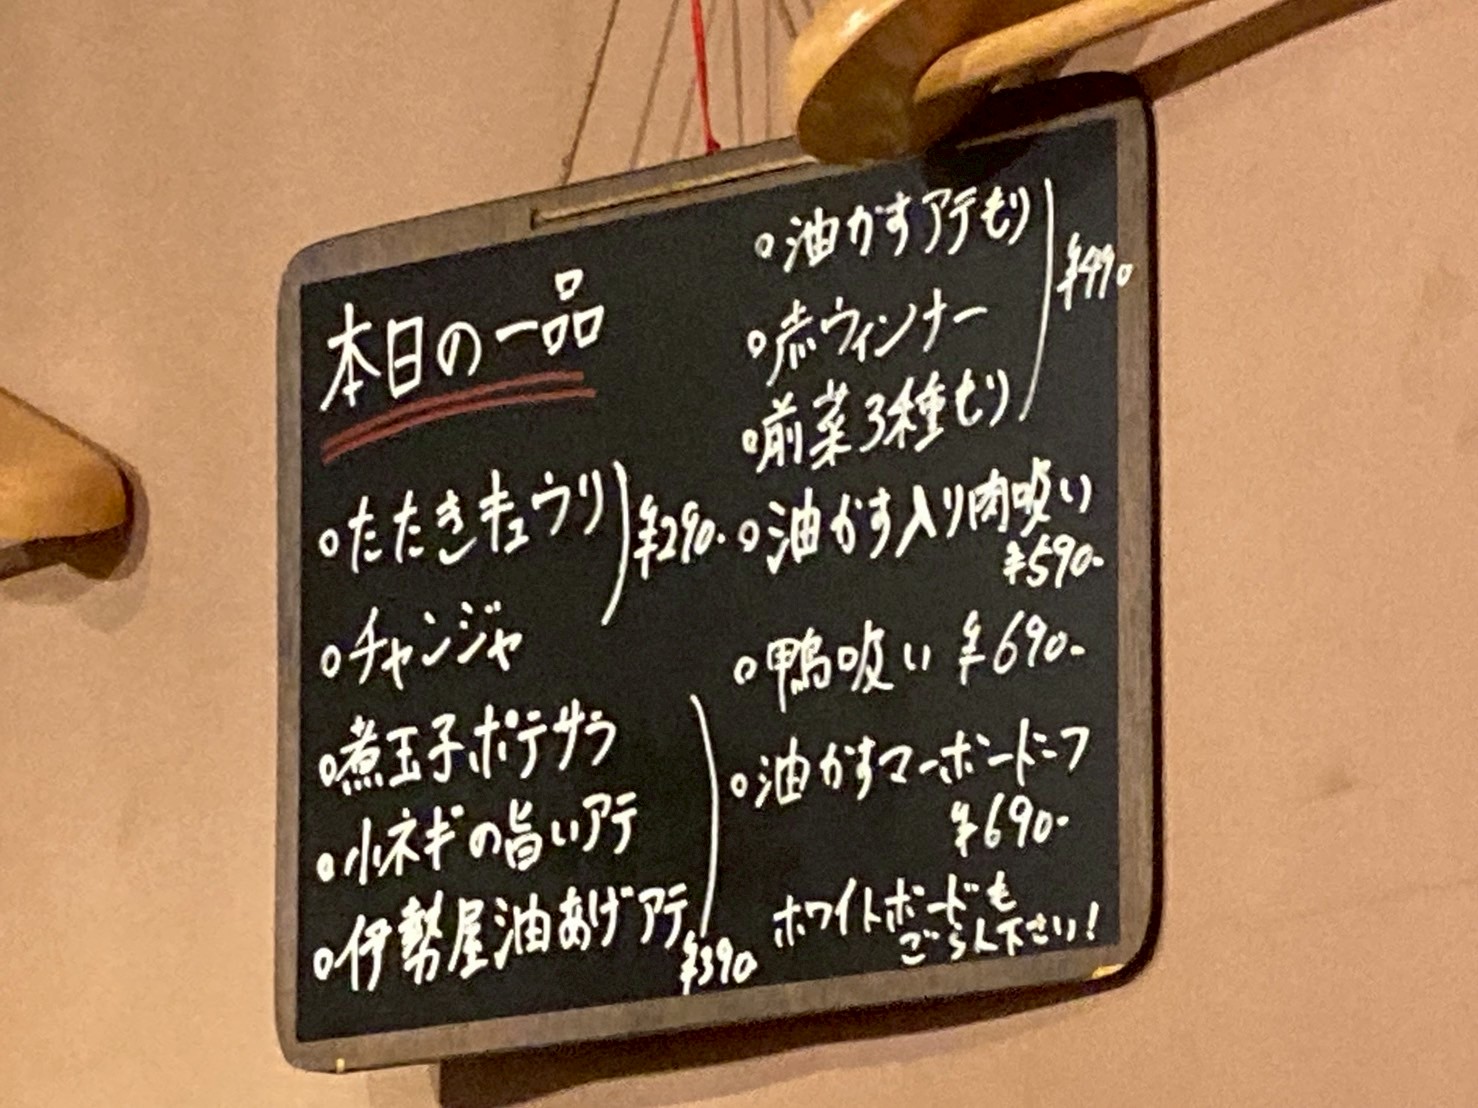 本日の一品
○たたきキュウリ
¥290-
○チャンジャ
○煮玉子ポテサラ
○小ネギの旨いアテ
○伊勢屋油あげアテ
¥390
○油かすアテもり
¥490
○赤ウィンナー
○前菜3種もり
○油かす入り肉吸い
¥590-
○鴨吸い ¥690-
○油かすマーボードーフ
¥690-
ホワイトボードも
ごらん下さい!